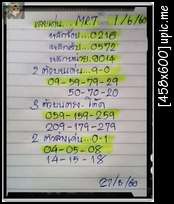 MPT 1/6/60
หลักร้อย...0216
หลักสิบ...0572
หลักหน่วย.9014
2 ตัวบนเด่น...9-0
09-59-79-29
50-70-20
3 ตัวบนตรง-โต๊ด
059-159-259
209-179-279
2 ตัวล่างเด่น..0-1
04-05-08
14-15-18
27/5/60
[458x600] upic.me